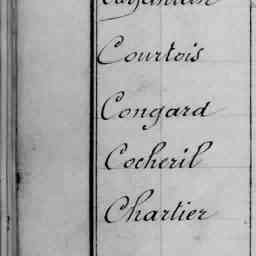 Courtois
Congard
Cocheril
Chartier